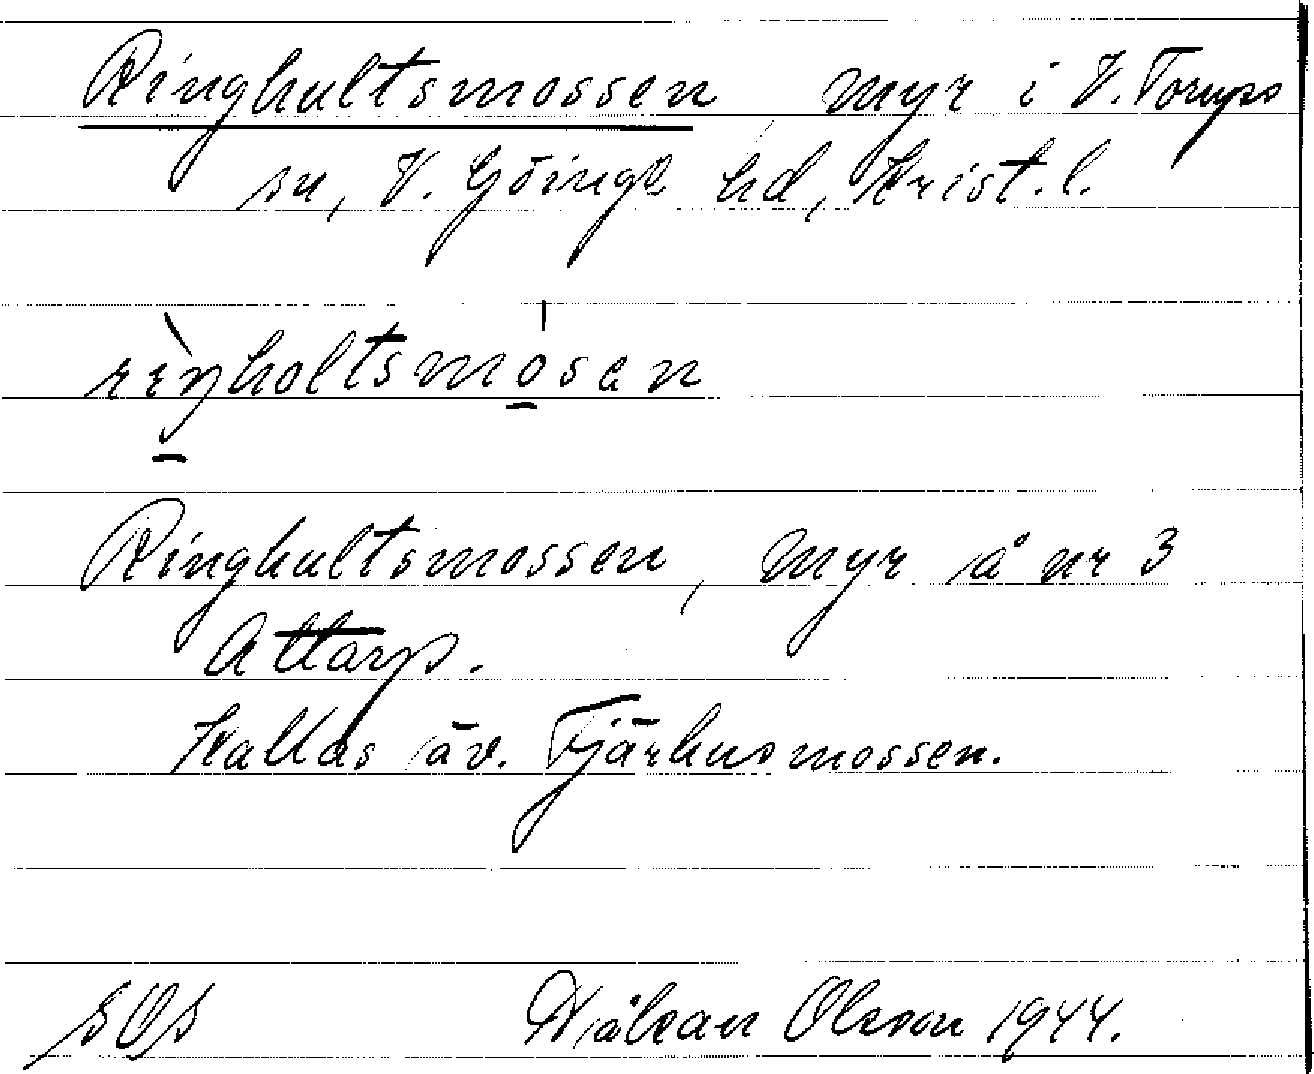 Ringhultsmossen myr i V. Torups
sn, V. Göinge hd, Krist. l.
rıŋholtsmosen
Ringhultsmossen, myr å nr 3
Attarp.
Kallas äv. Tjärhusmossen.
SOS Håkan Olsson 1944.